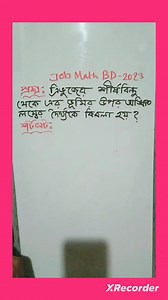 Job Math BD-2023
প্রশ্ন: ত্রিভুজের শীর্ষবিন্দু
থেকে এর ভূমির উপর অঙ্কিত
লম্বের দৈর্ঘ্যকে কি বলা হয়?
শর্টকাট:
XRecorder